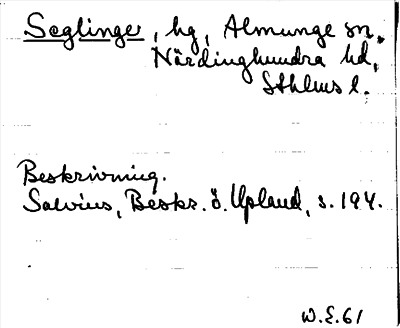 Seglinge, hg, Almunge sn.
Närdinghundra hd,
Sthlms l.
Beskrivning.
Salvius, Beskr. ö. Upland, s. 194.
W.E.61